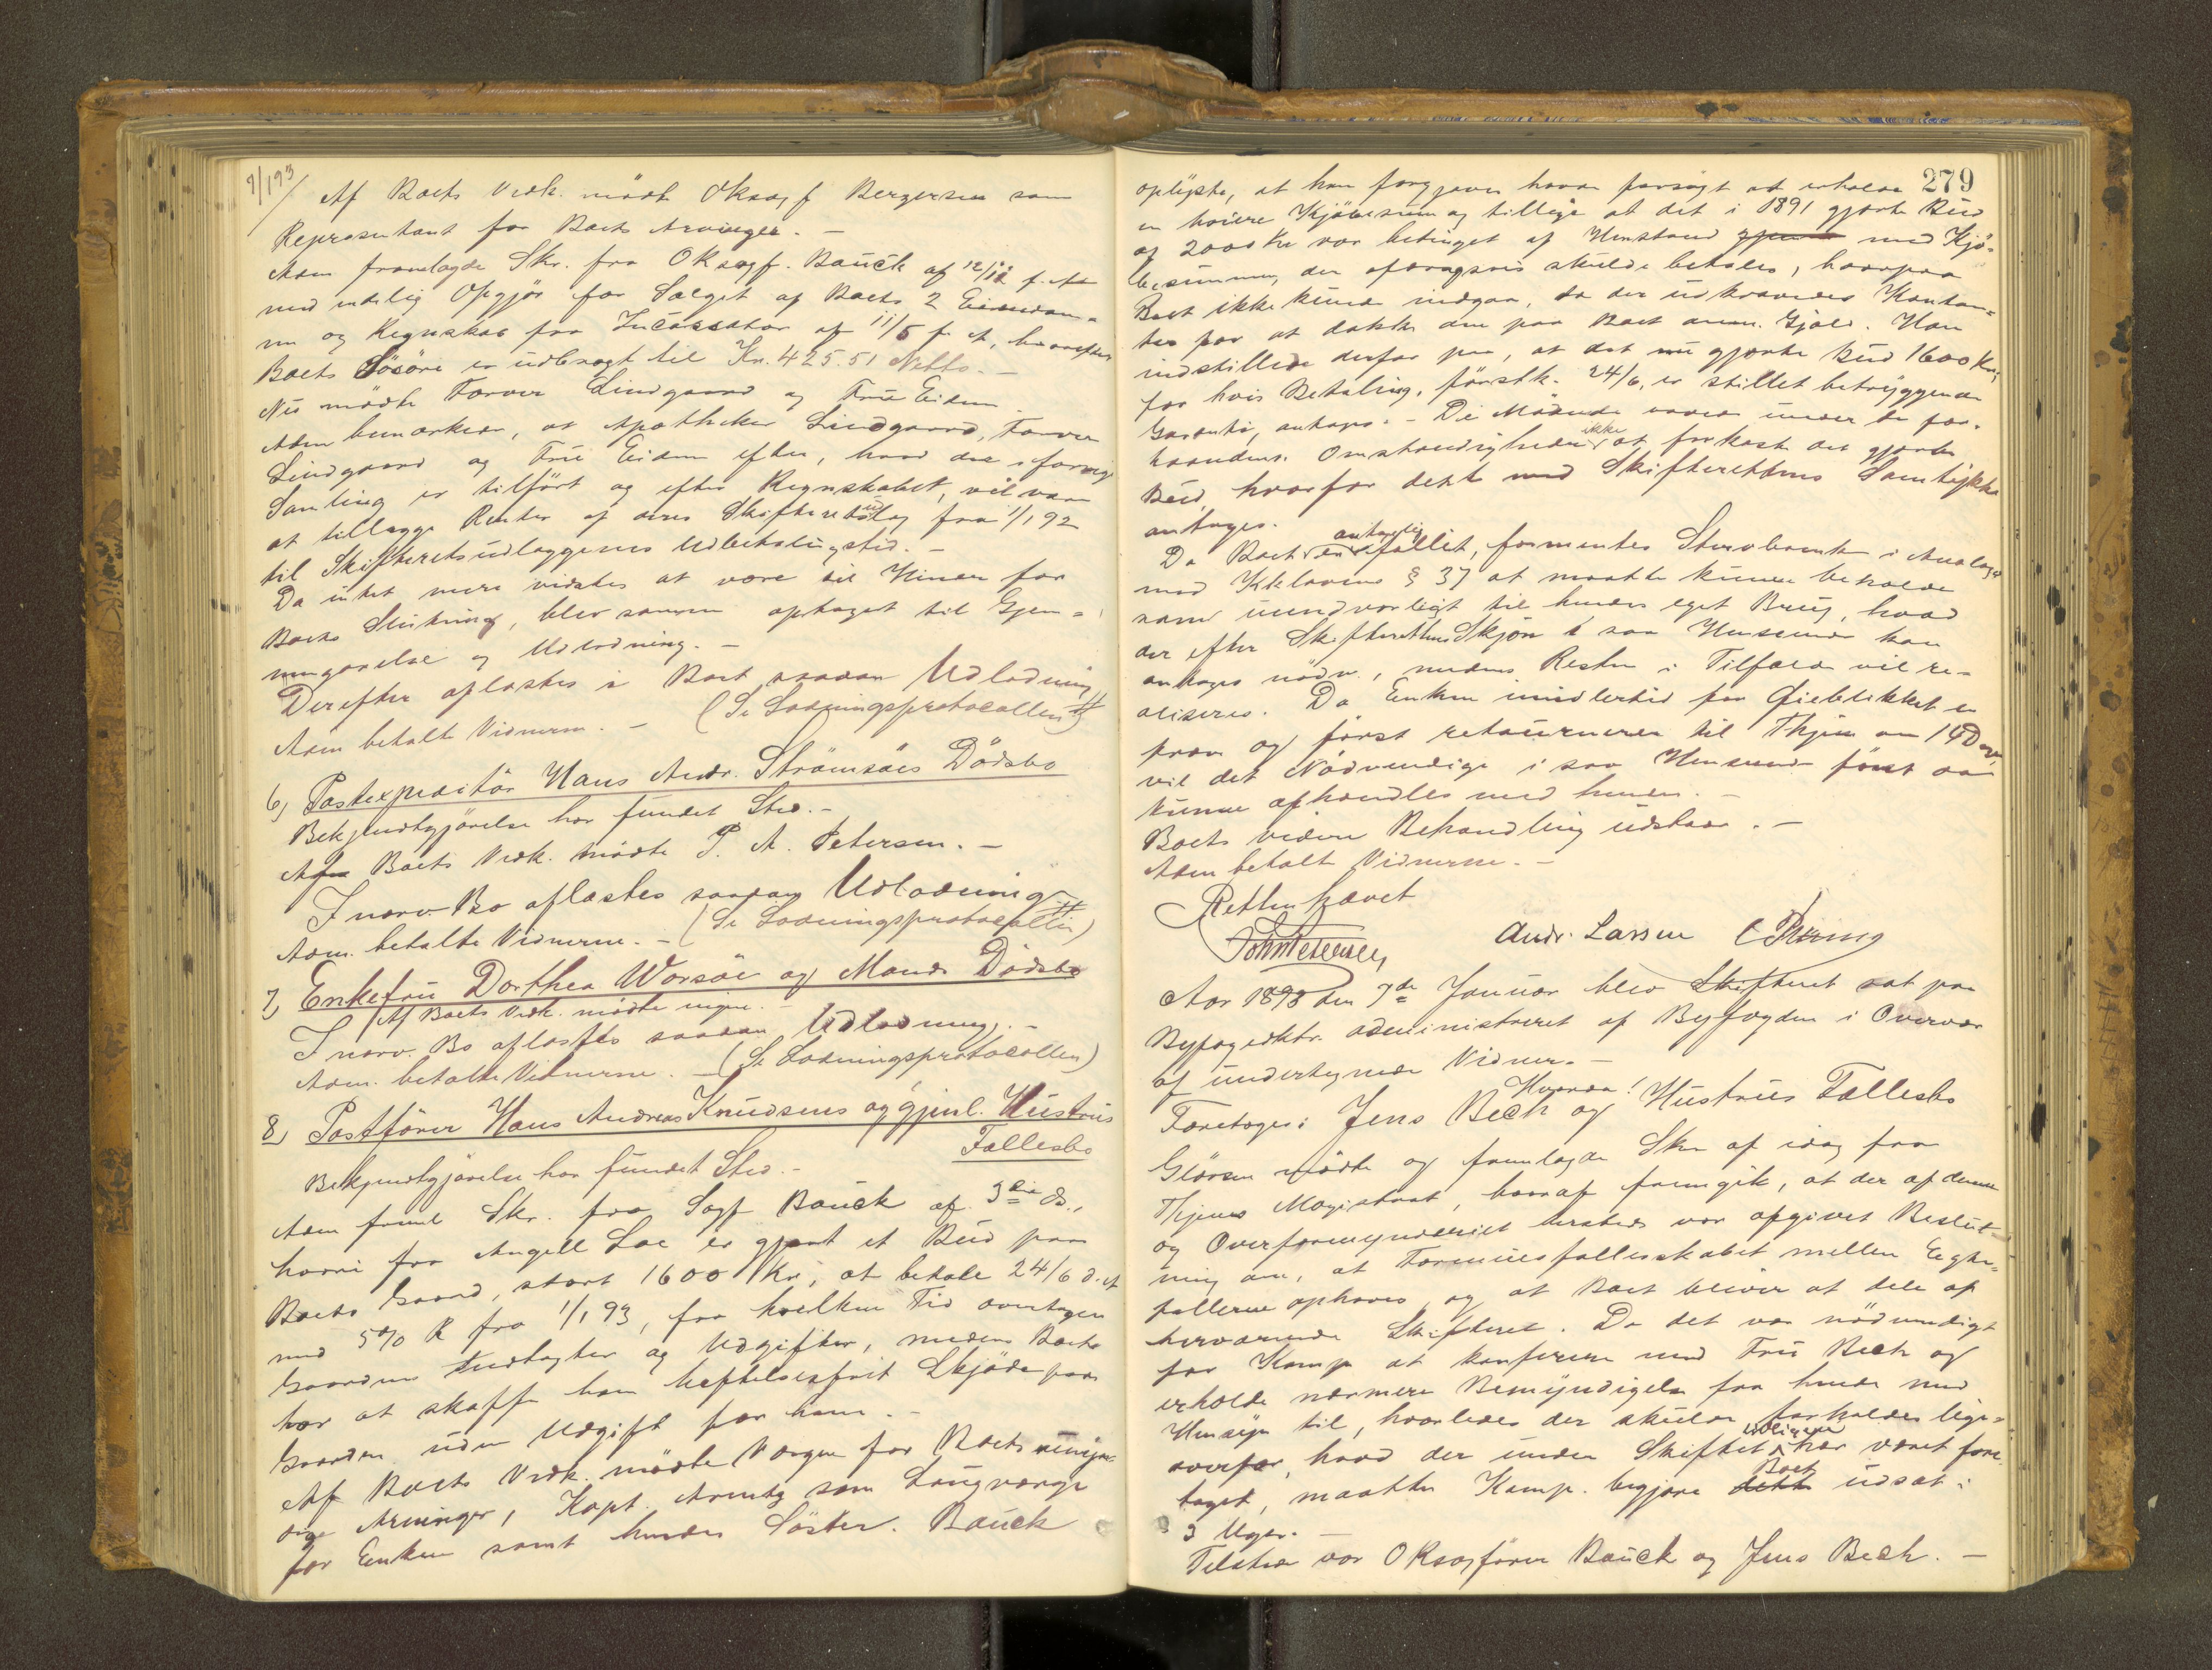 7/1 93
Af Boets Vedk. mødte OKsagf Bergersen som
Representant for Boets Arvinger. –
Adm fremlagde Skr. fra OKsagf. Bauck af 12/12 f. A
med endelig Opgjør for Salget af Boets 2 Eiendom=
me og Regnskab fra Incassator af 11/5 f. A, hvorefter
Boets Løsøre er udbragt til Kr. 425.51 Netto. –
Nu mødte Farver Lindgaard og Frue Eidem
Adm bemærkede, at Apotheker Lindgaard, Farver
Lindgaard og Frue Eidem efter, hvad der i forrige
Samling er tilført og efter Regnskabet, vil være
at tillægge Renter af deres Skifteretsudlæg fra 1/1 92
til Skifteretsudlæggenes Udbetalingstid. –
Da intet mere vidstes at være til Hinder for
Boets Slutning, blev samme optaget til Gjen=
nemgaaelse og Udlodning. –
Derefter aflæstes i Boet saadan Udlodning
Adm betalte Vidnerne. – (Se Lodningsprotocollen)
6, Postexpeditør Hans Andr. Strømsøes Dødsbo
Bekjendtgjørelse har fundet Sted. –
Af Boets Vedk. mødte P. A. Petersen. –
I nærv. Bo aflæstes saadan Udlodning
Adm. betalte Vidnerne. – (Se Lodningsprotocollen)
7, Enkefru Dorthea Worsøe og Mands Dødsbo
Af Boets Vedk. mødte ingen. –
I nærv. Bo aflæstes saadan Udlodning. –
Adm. betalte Vidnerne. – (Se Lodningsprotocollen)
8, Postfører Hans Andreas Knudsens og gjenl. Hustrus
Fællesbo
Bekjendtgjørelse har fundet Sted. –
Adm freml Skr. fra Sagf Bauck af 3die ds.,
hvori fra Angell Loe er gjort et Bud paa
Boets Gaard, stort 1600 Kr, at betale 24/6 d. A
med 5% R fra 1/1 93, fra hvilken Tid overtages
Gaardens Indtægter og Udgifter, medens Boet
har at skaffe ham heftelsesfrit Skjøde paa
Gaarden uden Udgift for ham. –
Af Boets Vedk. mødte Værgen for Boets umyn=
dige Arvinger, Kapt. Arentz som Laugværge
for Enken samt hendes Søster. Bauck
279
oplyste, at han forgjæves havde forsøgt at erholde
en høiere Kjøbesum og tillige at det i 1891 gjorte Bud
af 2000 Kr var betinget af Henstand med Kjø=
besummen, der afdragsvis skulde betales, hvorpaa
Boet ikke kunde indgaa, da der udkrævedes Kontan=
ter for at dække den paa Boet anm. Gjæld. Han
indstillede derfor paa, at det nu gjorte Bud 1600 Kr,
for hvis Betaling, førstk. 24/6, er stillet betryggende
Garanti, antages. – De Mødende vovede under de for=
haandenv. Omstændigheder ikke at forkaste det gjorte
Bud, hvorfor dette med Skifterettens Samtykke
antages.
Da Boet er antagelig fallit, formentes Stervboenken i Analogi
med Kklovens § 37 at maatte kunne beholde
som uundværligt til hendes eget Brug, hvad
der efter Skifterettens Skjøn i saa Henseende kan
antages nødv., medens Resten i Tilfælde vil re=
aliseres. Da Enken imidlertid for Øieblikket er
fræv og først retournerer til Thjem om 14 Dage,
vil det Nødvendige i saa Henseende først da
kunne afhandles med hende. –
Boets videre Behandling udstaar. –
Adm betalte Vidnerne. –
Retten hævet
Andr. Larsen
Aar 1893 den 7de Januar blev Skifteret sat paa
Byfogedktr. administreret af Byfogden i Overvær
af undertegnede Vidner. –
Hvorda!
Foretoges: Jens Bech og Hustrues Fællesbo
mødte og fremlagde Skr af idag fra
Thjems Magistrat, hvoraf fremgik, at der af denne
og Overformynderiet hersteds var afgivet Beslut=
ning om, at Formuesfællesskabet mellem Ægte=
fællerne ophæves og at Boet bliver at dele af
herværende Skifteret. Da det var nødvendigt
for Komp at konferere med Fru Bech og
erholde nærmere Bemyndigelse fra hende med
Hensyn til, hvorledes der skulde forholdes lige=
overfor, hvad der under Skiftet tidligere har været fore=
taget, maatte Komp. begjære Boet udsat i
3 Uger. –
Tilstede var OKsagfører Bauck og Jens Bech. –